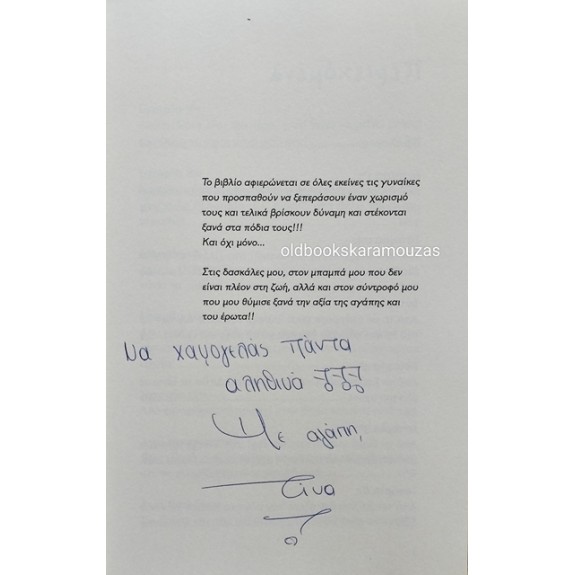 Το βιβλίο αφιερώνεται σε όλες εκείνες τις γυναίκες
που προσπαθούν να ξεπεράσουν έναν χωρισμό
τους και τελικά βρίσκουν δύναμη και στέκονται
ξανά στα πόδια τους!!!
Και όχι μόνο...
oldbookskaramouzas
Στις δασκάλες μου, στον μπαμπά μου που δεν
είναι πλέον στη ζωή, αλλά και στον σύντροφό μου
που μου θύμισε ξανά την αξία της αγάπης και
του έρωτα!!
Να χαμογελάς πάντα
αληθινά !!!
Με αγάπη,
Τίνα